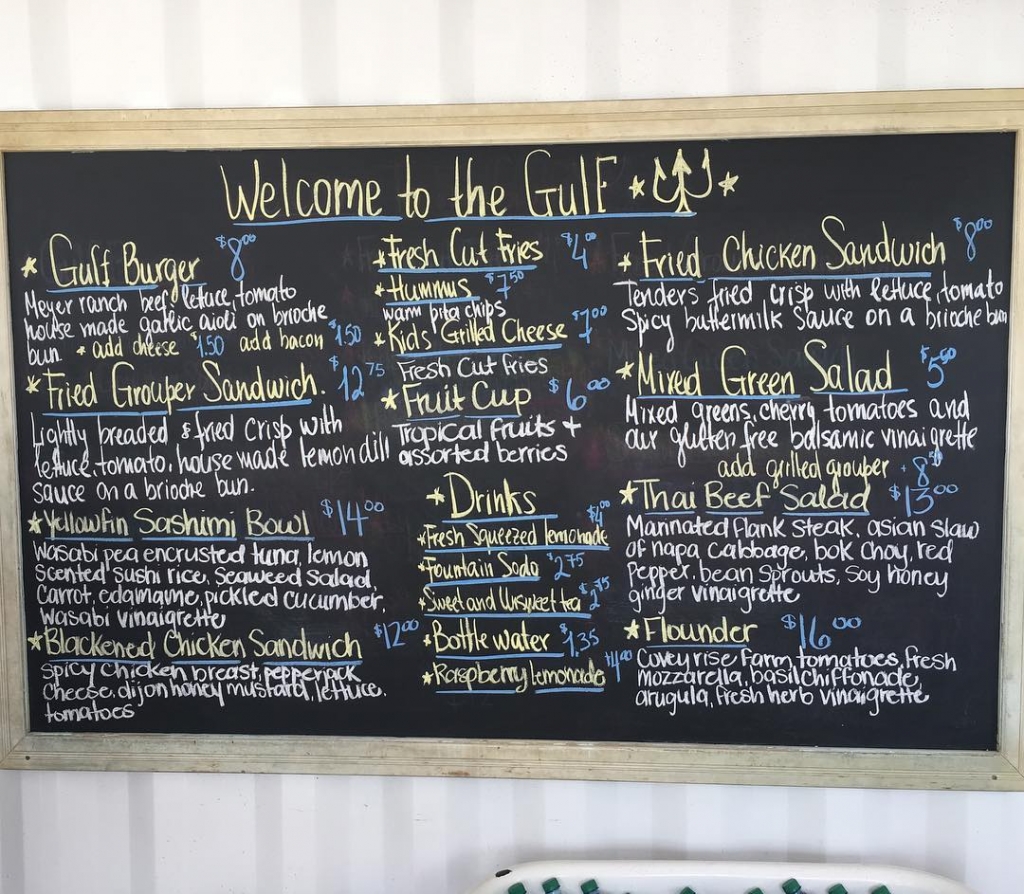 Welcome to the Gulf
* Gulf Burger $8.00
Meyer ranch beef, lettuce, tomato
house made garlic aioli on brioche
bun. * add cheese $1.50 add bacon $1.50
* Fried Grouper Sandwich. $12.75
Lightly breaded & fried crisp with
lettuce, tomato, house made lemon dill
sauce on a brioche bun.
* Yellowfin Sashimi Bowl $14.00
Wasabi pea encrusted tuna, lemon
scented sushi rice, seaweed salad,
carrot, edamame, pickled cucumber,
wasabi vinaigrette
* Blackened Chicken Sandwich $12.00
spicy chicken breast, pepperjack
cheese, dijon honey mustard, lettuce,
tomatoes
* Fresh Cut Fries $4.00
* Hummus $7.50
warm pita chips
* Kids Grilled Cheese $7.00
Fresh Cut fries
* Fruit Cup $6.00
Tropical fruits +
assorted berries
* Drinks
* Fresh Squeezed lemonade $4.00
* Fountain Soda $2.75
* Sweet and Unsweet tea $2.75
* Bottle water $1.35
* Raspberry lemonade $4.00
* Fried Chicken Sandwich $8.00
Tenders fried crisp with lettuce, tomato
Spicy buttermilk sauce on a brioche bun
* Mixed Green Salad $5.00
Mixed greens, cherry tomatoes and
our glutten free balsamic vinaigrette
add grilled grouper + 8.50
* Thai Beef Salad $13.00
Marinated flank steak, asian slaw
of napa cabbage, bok choy, red
pepper, bean sprouts, soy honey
ginger vinaigrette
* Flounder $16.00
Covey rise Farm tomatoes, fresh
mozzarella, basil chiffonade,
arugula, fresh herb vinaigrette